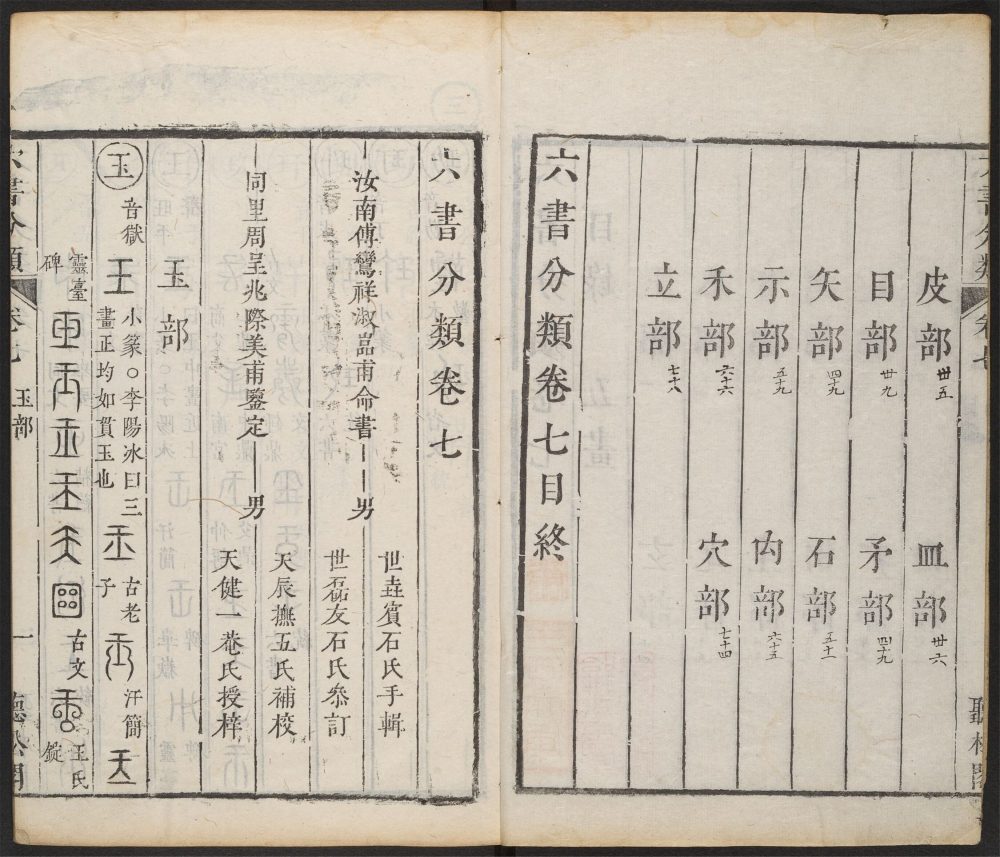 皮部 卅五 皿部 卅六
目部 卅九 矛部 四十九
矢部 四十九 石部 五十一
示部 五十九 禸部 六十五
禾部 六十六 穴部 七十四
立部 七十八
六書分類卷七目終
六書分類卷七
汝南傅鸞祥淑嵓甫命書 男 世垚賓石氏手輯
世磊友石氏叅訂
同里周呈兆際美甫鑒定 男 天辰撫五氏補校
天健一菴氏授梓
玉部
玉 音獄 小篆○李陽冰曰三畫正均如貫玉也 古老子 汗簡
靈臺碑 古文 王氏錠
六書分類 卷七 玉部 一